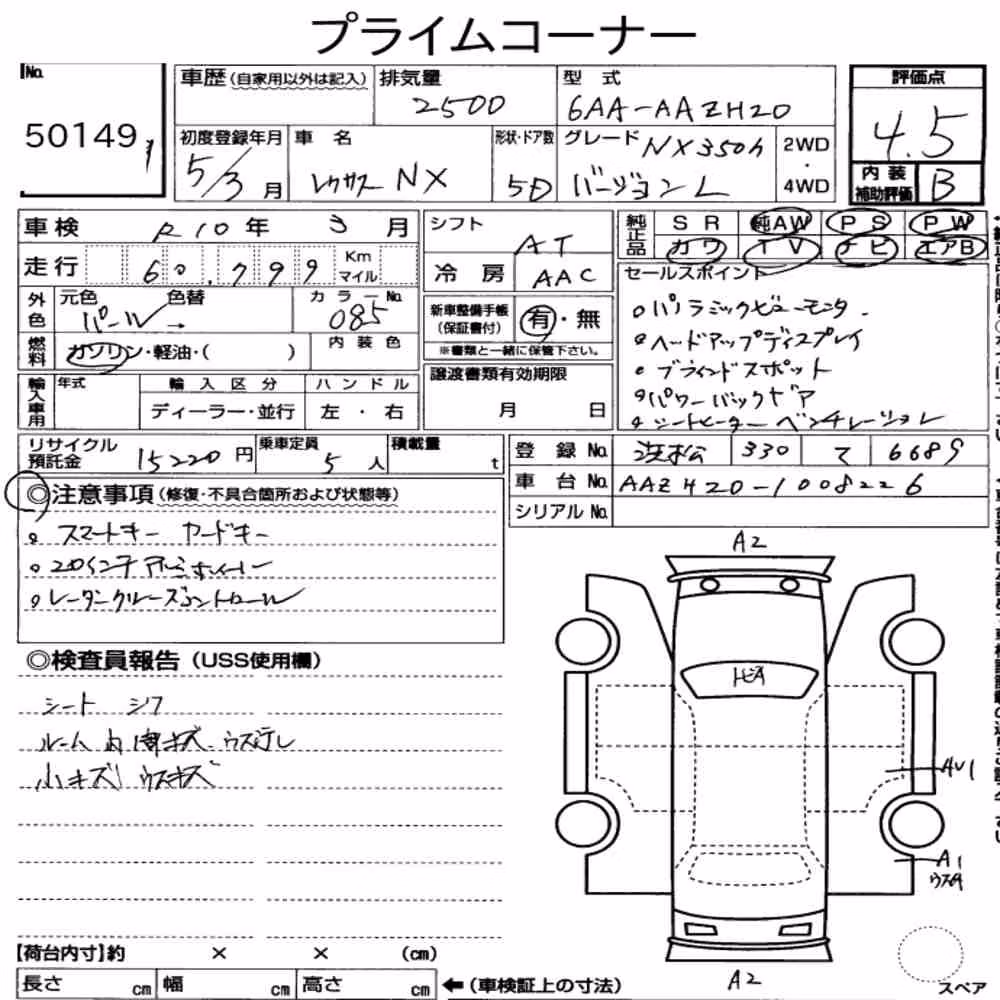 プライムコーナー
No. 50149
車歴(自家用以外は記入) 排気量 2500 型式 6AA-AAZH20
評価点 4.5
初度登録年月 5/3月 車名 レクサス NX 形状・ドア数 5D グレード NX350h バージョンL 2WD・4WD
内装補助評価 B
車検 R10年 3月 シフト AT
純正品 SR 純AW PS PW
カワ TV ナビ エアB
走行 60,799 Km マイル 冷房 AAC
セールスポイント
外色 元色 パール → 色替 カラーNo. 085
新車整備手帳(保証書付) 有・無
※書類と一緒に保管下さい。
燃料 ガソリン・軽油・( ) 内装色
。パノラミックビューモニター
。ヘッドアップディスプレイ
。ブラインドスポット
。パワーバックドア
。シートヒーター ベンチレーション
輸入車用 年式 輸入区分 ハンドル
ディーラー・並行 左・右
譲渡書類有効期限
月 日
リサイクル預託金 15220円 乗車定員 5人 積載量 t
登録No. 浜松 330 て 6689
車台No. AAZH20-1008226
シリアルNo.
◎注意事項(修復・不具合箇所および状態等)
。スマートキー カードキー
。20インチアルミホイール
。レーダークルーズコントロール
◎検査員報告(USS使用欄)
シート シワ
ルーム内 キズ ウス汚レ
小キズ ウスキズ
A2
AU1
A1
A2
スペア
【荷台内寸】約 × × (cm)
長さ cm 幅 cm 高さ cm ←(車検証上の寸法)